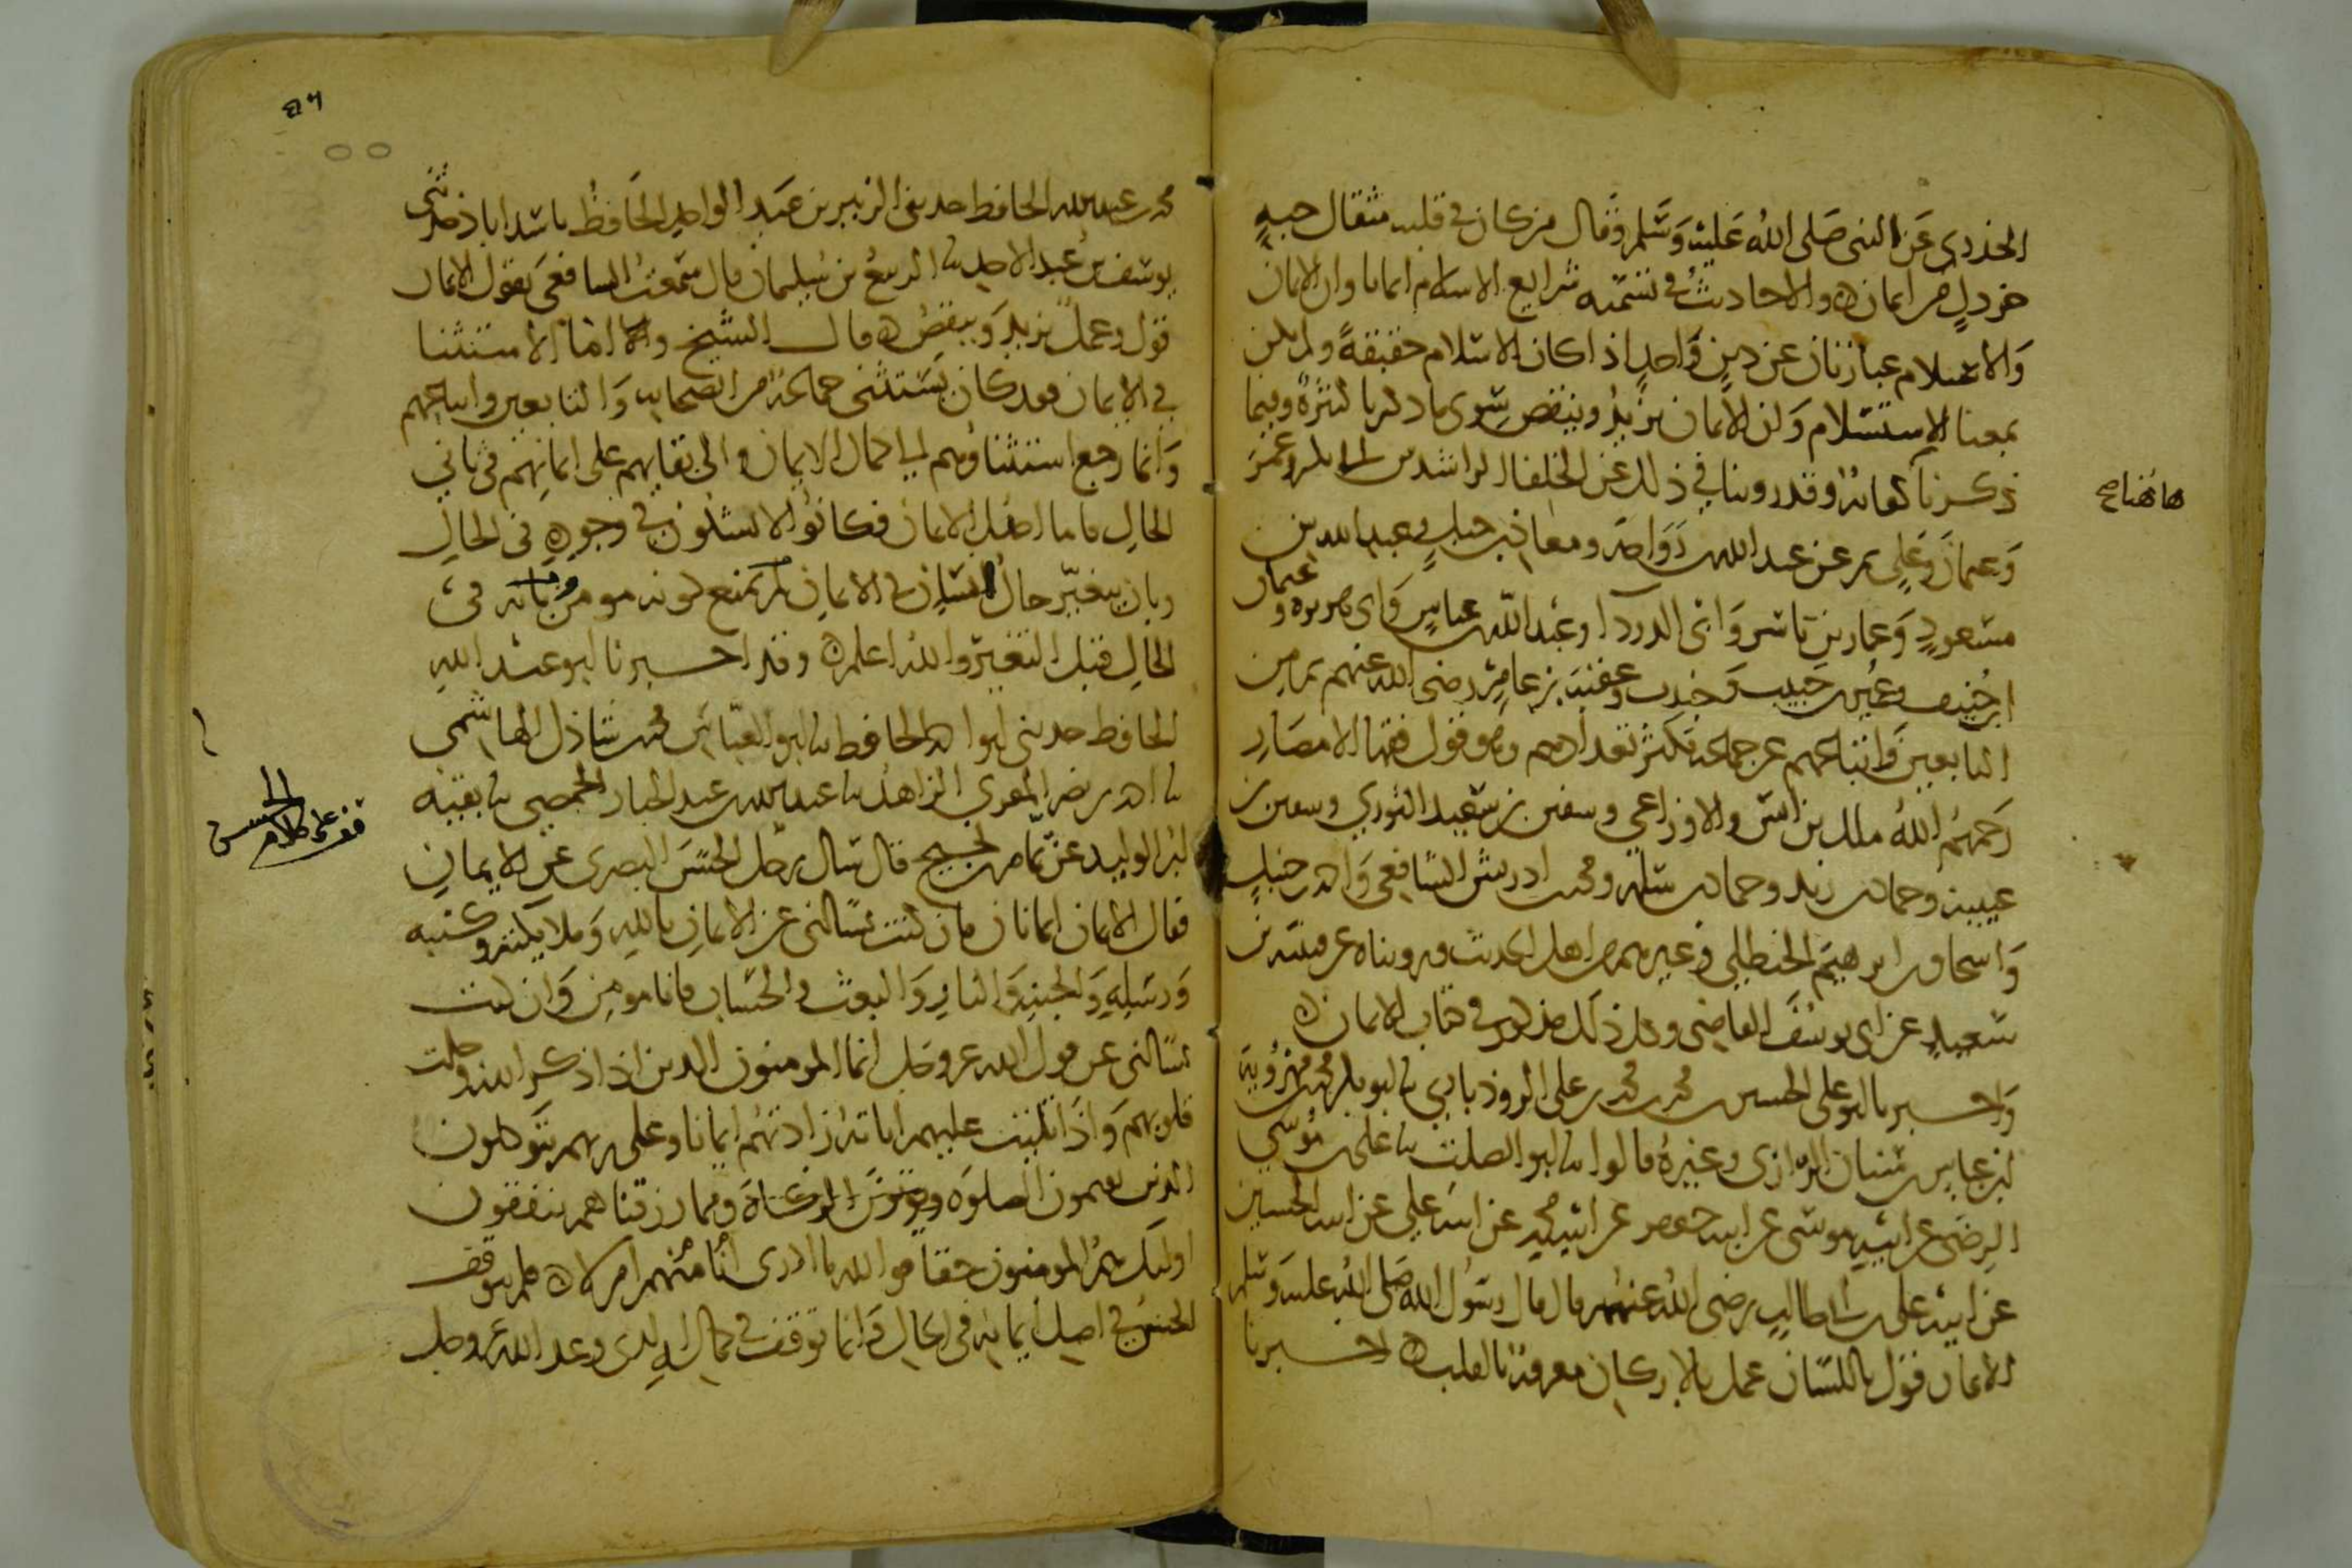 الخدري عن النبي صلى الله عليه وسلم وقال من كان في قلبه مثقال حبة
خردل من ايمان والاحاديث في تسميه شرايع الاسلام ايمانا وان الايمان
والاسلام عبارتان عن دين واحد اذا كان الاسلام حقيقة ولم يكن
بمعنا الاستسلام وان الايمان يزيد وينقص سوى ما ذكرنا كثيرة وفيما
ذكرنا كفاية وقد روينا في ذلك عن الخلفا الراشدين ابي بكر وعمر
هاهنا صح
وعثمان وعلي ثم عن عبد الله بن رواحة ومعاذ بن جبل وعبد الله بن
مسعود وعمار بن ياسر وابي الدردا وعبد الله بن عباس وابي هريرة و
عثمان
ابن حنيف وعمير بن حبيب وجندب وعقبة بن عامر رضي الله عنهم ثم من
التابعين واتباعهم عن جماعة يكثر تعدادهم وهو قول فقها الامصار
رحمهم الله ملك بن انس والاوزاعي وسفين بن سعيد الثوري وسفين بن
عيينة وحماد بن زيد وحماد بن سلمة ومحمد بن ادريس الشافعي واحمد بن حنبل
واسحاق بن ابرهيم الحنظلي وغيرهم من اهل الحديث ورويناه عن قتيبة بن
سعيد عن ابي يوسف القاضي وكل ذلك مذكور في كتاب الايمان
واخبرنا ابو علي الحسين بن محمد بن محمد بن علي الروذباري نا ابو بكر محمد بن مهروية
ابن عباس بن سنان الرازي وغيره قالوا نا ابو الصلت نا علي بن موسى
الرضى عن ابيه موسى عن ابيه جعفر عن ابيه محمد عن ابيه علي عن ابيه الحسين
عن ابيه علي بن ابي طالب رضي الله عنهم قال قال رسول الله صلى الله عليه وسلم
الايمان قول باللسان عمل بالاركان معرفة بالقلب اخبرنا
٥٦
محمد بن عبد الله الحافظ حدثني الزبير بن عبد الواحد الحافظ باسداباذ حدثني
يوسف بن عبد الاحد نا الربيع بن سليمان قال سمعت الشافعي يقول الايمان
قول وعمل يزيد وينقص قال الشيخ واما الاستثنا
في الايمان فقد كان يستثني جماعة من الصحابه والتابعين واتباعهم
وانما رجع استثناوهم الى كمال الايمان والى بقايهم على ايمانهم في ثاني
الحال فاما اصل الايمان فكانوا لا يشكون في وجوده في الحال
وبان يتغير حال انسان في الايمان لم يمنع كونه مومنا في
الحال قبل التغير والله اعلم وقد اخبرنا ابو عبد الله
الحافظ حدثني ابو احمد الحافظ نا ابو العباس محمد بن شاذل الهاشمي
نا احمد بن نصر المقري الزاهد نا عبد الله بن عبد الجبار الحمصي نا بقيه
قف على كلام الحسن
ابن الوليد عن تمام بن نجيح قال سال رجل الحسن البصري عن الايمان
فقال الايمان ايمانان فان كنت تسالني عن الايمان بالله وملايكته وكتبه
ورسله والجنة والنار والبعث والحساب فانا مومن وان كنت
تسالني عن قول الله عز وجل انما المومنون الذين اذا ذكر الله وجلت
قلوبهم واذا تليت عليهم اياته زادتهم ايمانا وعلى ربهم يتوكلون
الذين يقيمون الصلوه ويوتون الزكاة ومما رزقناهم ينفقون
اوليك هم المومنون حقا فوالله ما ادري انا منهم ام لا فلم يتوقف
الحسن في اصل ايمانه في الحال وانما توقف في كماله الذي وعد الله عز وجل